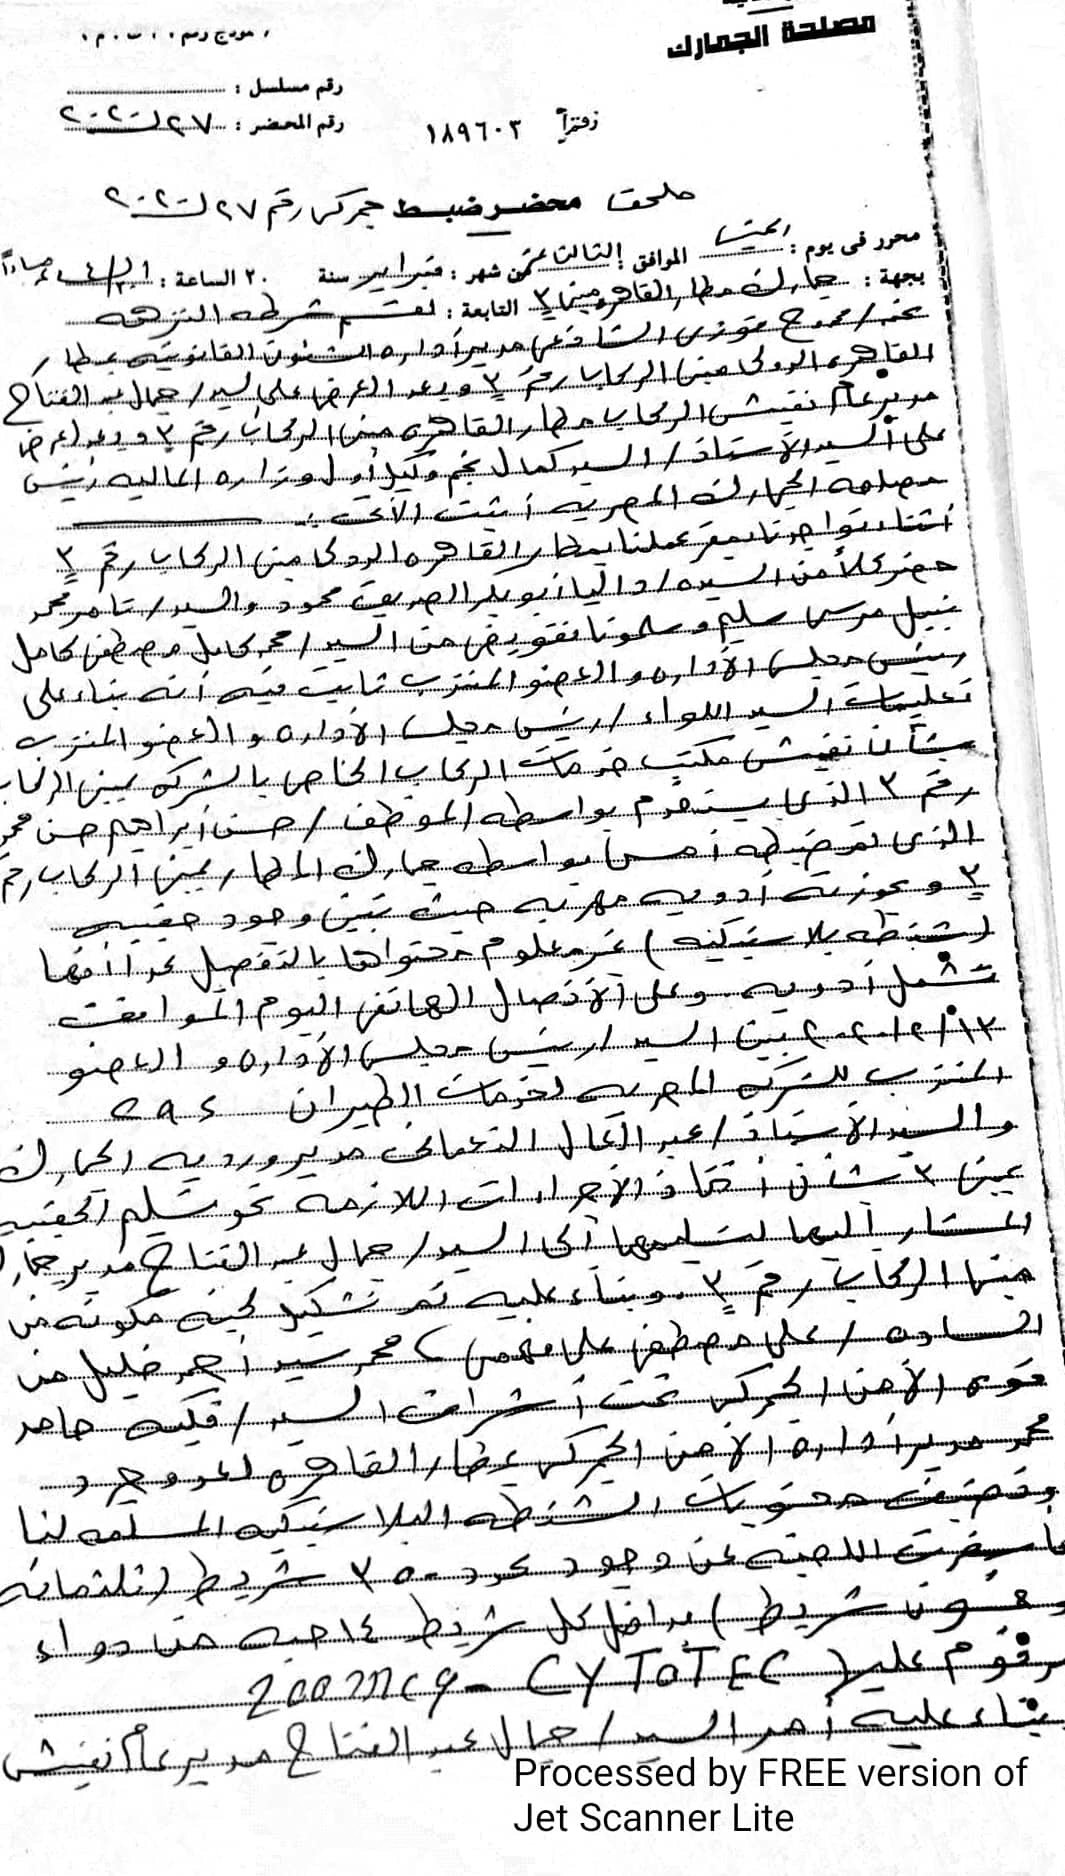 مصلحة الجمارك
رقم مسلسل :
رقم المحضر : ٢٧ لسنة ٢٠٢٠
١٨٩٦٠٣
ملحق محضر ضبط جمركى رقم ٢٧ لسنة ٢٠٢٠
محرر فى يوم : الخميس الموافق : الثالث عشر من شهر : فبراير سنة ٢٠ الساعة :
بجهة : جمارك مطار القاهرة مبنى ٣ التابعة : لقسم شرطه النزهه
نحن / ممدوح فوزى الشافعى مدير أداره الشئون القانونيه بمطار
القاهره الدولى مبنى الركاب رقم ٣ وبعد العرض على السيد / جمال عبد الفتاح
مدير عام تفتيش الركاب مطار القاهره مبنى الركاب رقم ٣ وبعد العرض
على السيد الأستاذ / السيد كمال نجم وكيل أول وزاره الماليه رئيس
مصلحه الجمارك المصريه أثبت الأتى :
أثناء تواجدنا بمقر عملنا بمطار القاهره الدولى مبنى الركاب رقم ٣
حضر كلاً من السيده / داليا أبو بكر الصديق محمود والسيد / تامر محمد
نبيل مرسى سليم وسلمونا تفويض من السيد / محمد كامل مصطفى كامل
رئيس مجلس الأداره والعضو المنتدب ثابت فيه أنه بناء على
تعليمات السيد اللواء / رئيس مجلس الأداره والعضو المنتدب
بشأن تفتيش مكتب خدمات الركاب الخاص بالشركه بمبنى الركاب
رقم ٣ الذى يستخدم بواسطه الموظف / حسن أبراهيم حسن محمد
الذى تم ضبطه أمس بواسطه جمارك المطار بمبنى الركاب رقم
٣ وبحوزته أدويه مهربه حيث تبين وجود حقيبه
( شنطه بلاستيكيه ) غير معلوم محتواها بالتفصيل عدا أنها
تشمل أدويه وعلى الأتصال الهاتفى اليوم الموافق
١٣/٢/٢٠٢٠ بين السيد / رئيس مجلس الأداره والعضو
المنتدب للشركه المصريه لخدمات الطيران
والسيد الأستاذ / عبد العال النعمانى مدير ورديه الجمارك
بمبنى ٣ بشأن أتخاذ الأجراءات اللازمه نحو تسليم الحقيبه
المشار أليها لتسليمها ألى السيد / جمال عبد الفتاح مدير جمارك
مبنى الركاب رقم ٣ وبناء عليه تم تشكيل لجنه مكونه من
الساده / على مصطفى على فهمى ، محمد سيد أحمد خليل من
قوه الأمن الجمركى تحت أشراف السيد / فكيه حامد
محمد مدير أداره الأمن الجمركى بمطار القاهره لعد وجرد
وتصنيف محتويات الشنطه البلاستيكيه المسلمه لنا
فأسفرت اللجنه عن وجود عدد ٣٥٠ شريط ( ثلثمائه
وخمسون شريط ) بداخل كل شريط ١٤ حبه من دواء
مرقوم عليه ( CYTOTEC - 200mcg
بناء عليه أمر السيد / جمال عبد الفتاح مدير عام تفتيش
Processed by FREE version of
Jet Scanner Lite